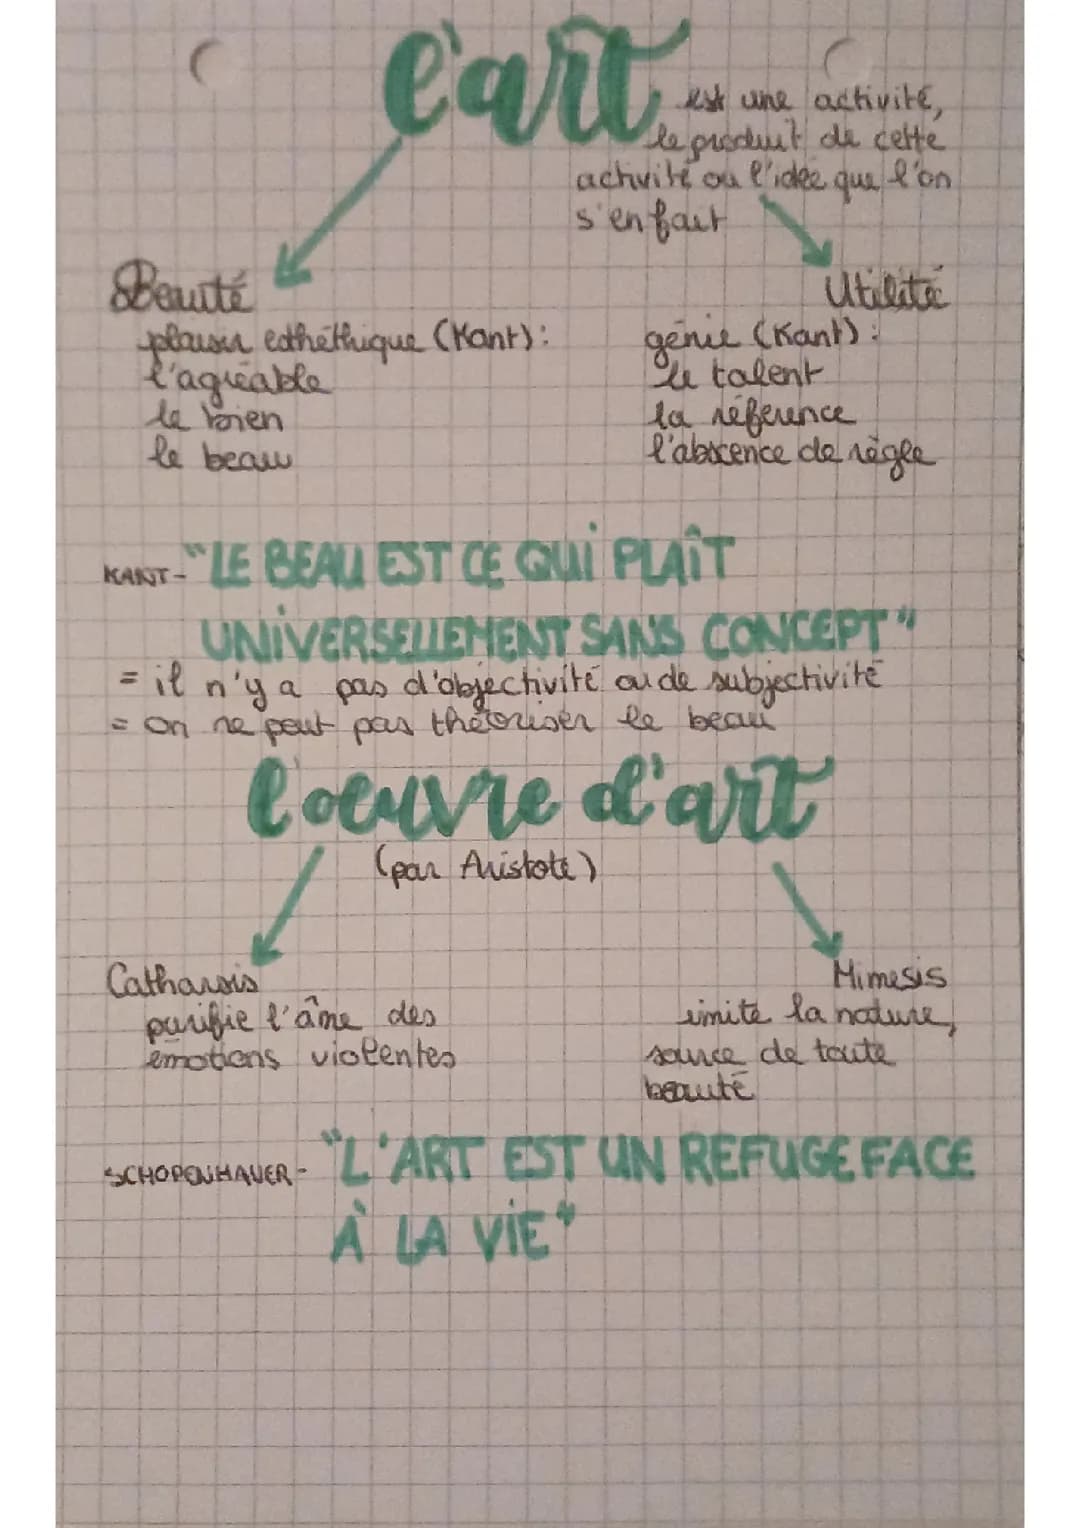 l'art
est une activité,
le produit de cette
activité ou l'idée que l'on
s'en fait
Beauté
plaisir esthéthique (Kant):
l'agréable
le bien
le beau
Utilité
génie (Kant):
le talent
la référence
l'abscence de règle
KANT- "LE BEAU EST CE QUI PLAÎT
UNIVERSELLEMENT SANS CONCEPT"
= il n'y a pas d'objectivité ou de subjectivité
= on ne peut pas théoriser le beau
l'oeuvre d'art
(par Aristote)
Catharsis
purifie l'âme des
émotions violentes
Mimesis
imite la nature,
source de toute
beauté
SCHOPENHAUER- "L'ART EST UN REFUGE FACE
À LA VIE"